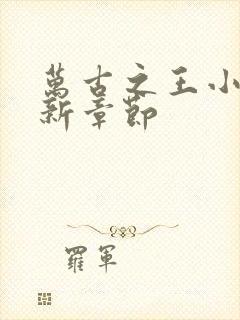 萬古之王小
新章節
羅軍